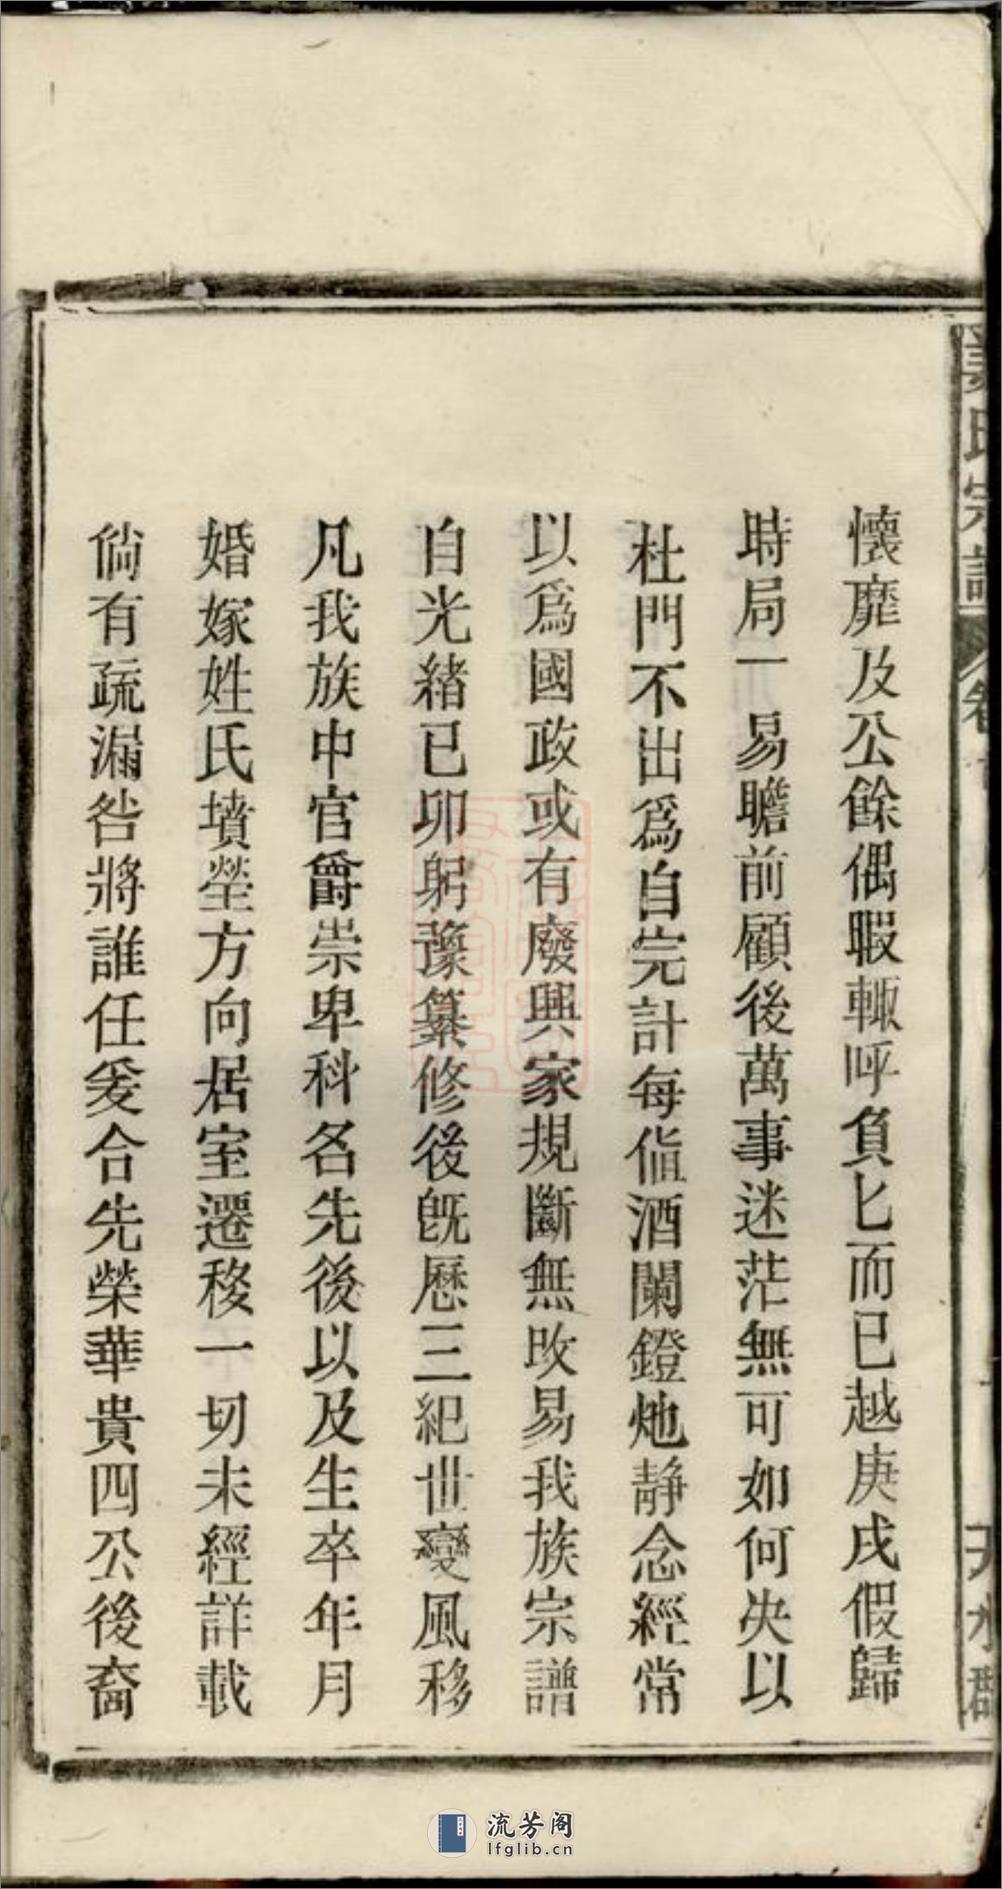 懷靡及公餘偶暇輙呼負匕而已越庚戌假歸
時局一易瞻前顧後萬事迷茫無可如何决以
杜門不出爲自完計每値酒闌鐙灺靜念經常
以爲國政或有廢興家規斷無攺易我族宗譜
自光緖已卯躬豫纂修後旣歷三紀世變風移
凡我族中官爵崇卑科名先後以及生卒年月
婚嫁姓氏墳塋方向居室遷移一切未經詳載
倘有疏漏咎將誰任爰合先榮華貴四公後裔
氏宗譜
天水郡
流芳阁
lfglib.cn